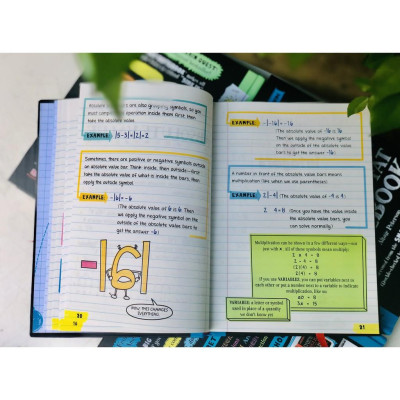 Absolute bars are also grouping symbols, so you
must complete operation inside them first, then
take the absolute value.
EXAMPLE: |5-3|=|2|=2
Sometimes, there are positive or negative symbols outside
an absolute value bar. Think: inside, then outside—first
take the absolute value of what is inside the bars, then
apply the outside symbol.
EXAMPLE: -|6|=-6
(The absolute value of 6 is 6. Then
we apply the negative symbol on the
outside of the absolute value bars to
get the answer -6.)
-|6|
NOW THIS CHANGES
EVERYTHING.
20
EXAMPLE: -|-16|=-16
(The absolute value of -16 is 16.
Then we apply the negative symbol
on the outside of the absolute value
bars to get the answer -16.)
A number in front of the absolute value bars means
multiplication (like when we use parentheses).
EXAMPLE: 2|-4| (The absolute value of -4 is 4.)
2·4=8 (Once you have the value inside
the absolute value bars, you
can solve normally.)
Multiplication can be shown in a few different ways—not
just with ×. All of these symbols mean multiply:
2 × 4 = 8
2 · 4 = 8
(2)(4) = 8
2(4) = 8
If you use VARIABLES, you can put variables next to
each other or put a number next to a variable to indicate
multiplication, like so:
ab = 8
3x = 15
VARIABLE: a letter or symbol
used in place of a quantity
we don't know yet
21